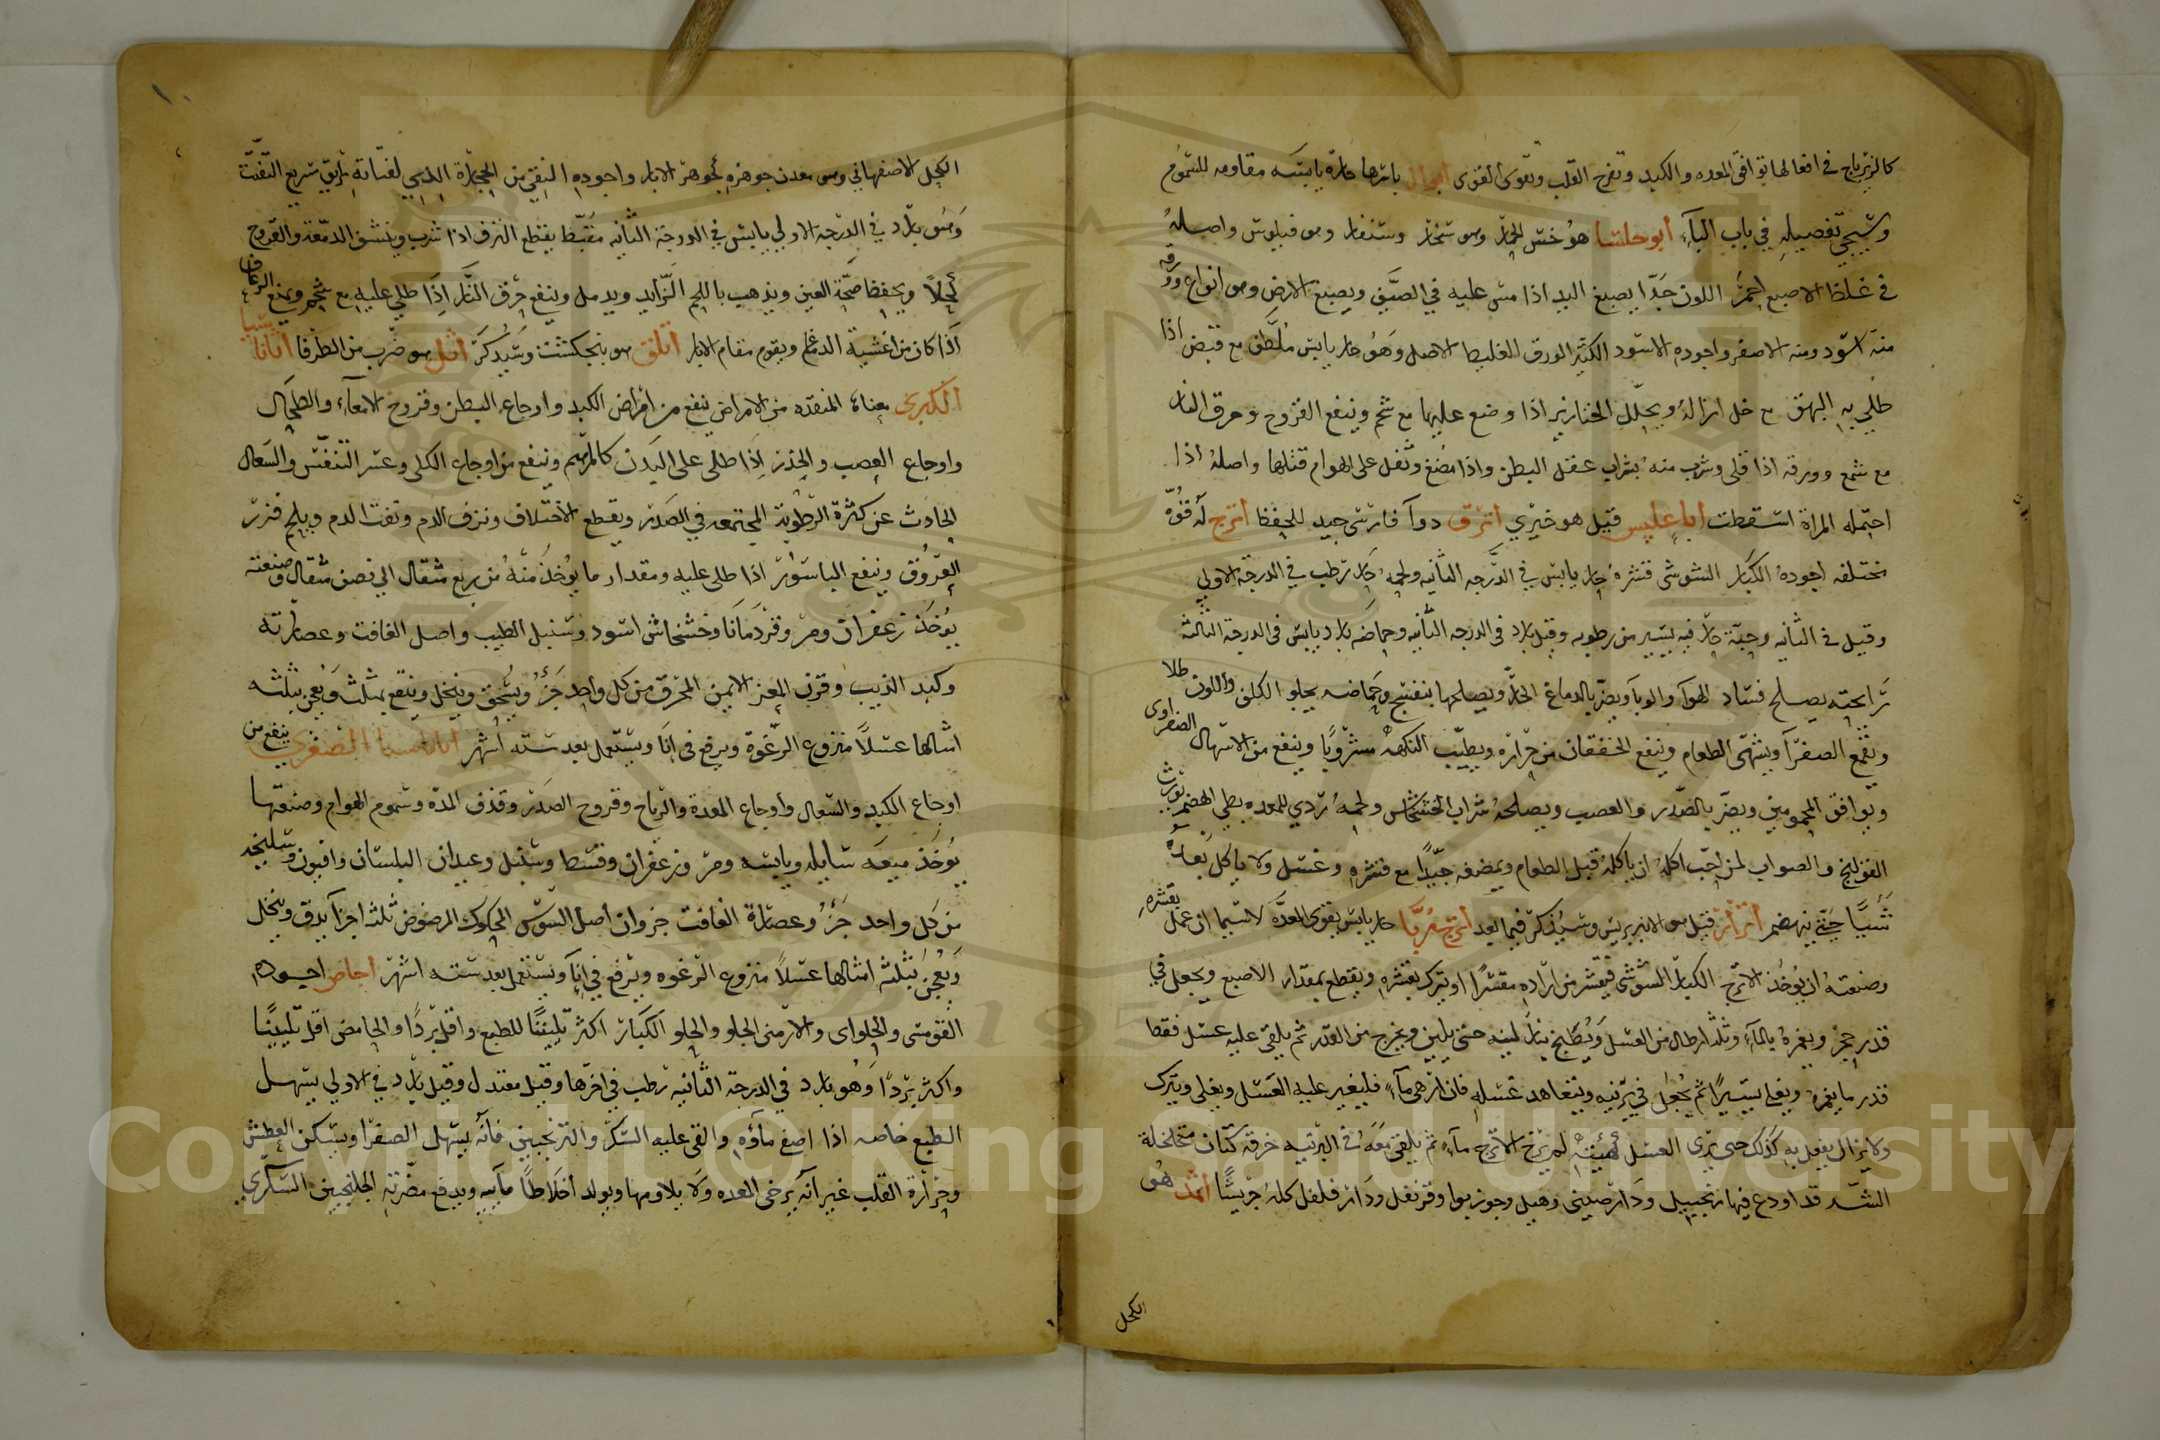 كالزنرباج في افعالها توافق المعده والكبد وتفرح القلب وتقوى القوى ابهال باسرها حارة يابسه مقاومه للسموم
وسيجي تفصيله في باب البآء أبو حلسا هو خس الحمار وهو شنجار وشنقار وهو فيلوس واصله
في غلظ الاصبع احمر اللون جدا يصبغ اليد اذا مس عليه في الصيف ويصبغ الارض وهو انواع ورقه
منه اسود ومنه الاصفر واجوده الاسود الكثير الورق الغليظ الاصل وهو حار يابس ملطف مع قبض اذا
طلي به البهق مع خل ازاله ويحلل الخنازير اذا وضع عليها مع شحم وينفع القروح وحرق النار
مع شمع وورقه اذا قلي وشرب منه بشراب عقل البطن واذا مضغ وتفل على الهوام قتلها واصله اذا
احتمله المراة اسقطت اباعليس قيل هو خيري اترق دوآ فارسى جيد للحفظ أترج له قوة
مختلفه اجوده الكبار السوسى قشره حار يابس في الدرجه الثانيه ولحمه حار رطب في الدرجة الاولي
وقيل في الثانيه وحبه حار فيه يسير من رطوبه وقيل بارد في الدرجه الثانيه وحماضه بارد يابس في الدرجة الثالثة
رايحته يصلح فساد الهوآ والوبآ ويضر بالدماغ الحار ويصلحها بنفسج وحماضه يجلو الكلف واللون طلا
وتقمع الصفرآ ويشهى الطعام وينفع الخفقان من حرارة ويطيب النكهة مشروبا وينفع من الاسهال الصفراوى
ويوافق المحمومين ويضر بالصدر والعصب ويصلحه شراب الخشخاش ولحمه ردي للمعده بطي الهضم يورث
القولنج والصواب لمن احب اكله ان ياكله قبل الطعام ويمضغه جيدا مع قشره وعسل ولا ياكل بعده
شيا حتى ينهضم أترار قيل هو الانبرباريس وسيذكر فيما بعد أترج مربا حار يابس يقوى المعده لاسيما ان عمل بقشره
وصنعته ان يوخذ الاترج الكبار السوسى فيقشر من اراده مقشرا او يترك بقشره ويقطع بمقدار الاصبع ويجعل في
قدر حجر ويغمره بالمآء وثلث ارطال من العسل ويطبخ بنار لينه حتى يلين ويخرج من القدر ثم يلقى عليه عسل فقط
قدر ما يغمره ويغلي يسيرا ثم يجعل في برنيه ويتعاهد عسله فان ازهى مآء فليغير عليه العسل ويغلى ويترك
ولا يزال يفعل به كذلك حتى يرى العسل بهيئته لم يرخ الاترج مآء ثم يلقى معه في البرنيه خرقة كتان متخلخلة
الشد قد اودع فيها زنجبيل ودارصيني وهيل وجوزبوا وقرنفل ودار فلفل كله جريشا أثمد هو
الكحل
الكحل الاصفهاني وهو معدن جوهره كجوهر الانار واجوده النقي من الحجارة الذي لفتاته بريق سريع التفتت
وهو بارد في الدرجه الاولي يابس في الدرجة الثانيه مقبط يقطع النزف اذا شرب وينشف الدمعة والقروح
كحلا ويحفظ صحة العين ويذهب باللحم الزايد ويدمل وينفع حرق النار اذا طلي عليه مع شحم ويمنع الرعاف
اذا كان من اغشية الدماغ ويقوم مقام الانار أثلق هو بنجكشت وسيذكر أثل هو ضرب من الطرفا أثاناسيا
الكبرى معناه المنقذه من الامراض ينفع من امراض الكبد واوجاع البطن وقروح الامعآء والطحال
واوجاع العصب والخدر اذا طلي على البدن كالمرهم وينفع من اوجاع الكلى وعسر التنفس والسعال
الحادث عن كثرة الرطوبة المجتمعه في الصدر ويقطع الاختلاف ونزف الدم ونفث الدم ويلحم فزر
العروق وينفع الباسور اذا طلى عليه ومقدار ما يوخذ منه من ربع مثقال الي نصف مثقال وصنعته
يوخذ زعفران ومر وقردمانا وخشخاش اسود وسنبل الطيب واصل الغافت وعصارته
وكبد الذيب وقرن المعز الايمن المحرق من كل واحد جزء ويسحق وينخل وينقع بمثلث ويعجن بثلثه
امثالها عسلا منزوع الرغوة ويرفع في انا ويستعمل بعد سته اشهر اثاناسيا الصغري ينفع من
اوجاع الكبد والسعال واوجاع المعدة والرياح وقروح الصدر وقذف المدة وسموم الهوام وصنعتها
يوخذ ميعه سايله ويابسه ومر وزعفران وقسط وسنبل وعيدان البلسان وافيون وسليخه
من كل واحد جزء وعصارة الغافت جزوان اصل السوس المحكوك المرضوض ثلث اجزآ يدق وينخل
ويعجن بثلثه امثالها عسلا منزوع الرغوه ويرفع في انآ ويستعمل بعد سته اشهر أجاص اجوده
القومسي والحلواى والارمنى الحلو والحلو الكبار اكثر تليينا للطبع واقل بردا والحامض اقل تليينا
واكثر بردا وهو بارد في الدرجة الثانيه رطب في اخرها وقيل معتدل وقيل بارد في الاولي يسهل
الطبع خاصه اذا اصفى مآؤه والقى عليه السكر والترنجبين فانه يسهل الصفرا ويسكن العطش
وحرارة القلب غير انه يرخى المعده ولا يلاومها ويولد اخلاطا مآييه ويدفع مضرته الجلنجبين السكري
Copyright © King Saud University
1957